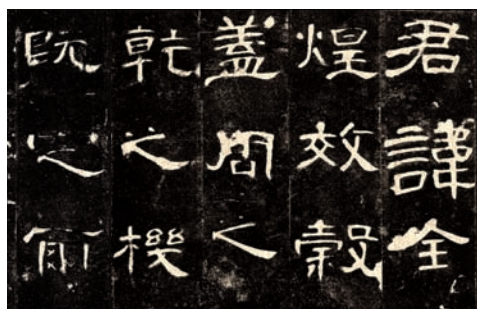 君諱全
煌效穀
蓋周之
乾之機
既